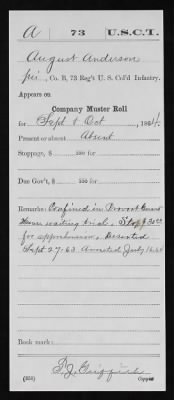 A 73 U.S.C.T.
August Anderson
Co. B, 73 Reg't U. S. Col'd Infantry.
Appears on
Company Muster Roll
for Sept & Oct, 1864.
Present or absent Absent
Stoppage, $ 100 for
Due Gov't, $ 100 for
Remarks: Confined in Provost Guard
House waiting trial. Stop $30.00
for apprehension. Deserted
Sept 27.63 Arrested July 16.64
Book mark:
(858) Copyist.